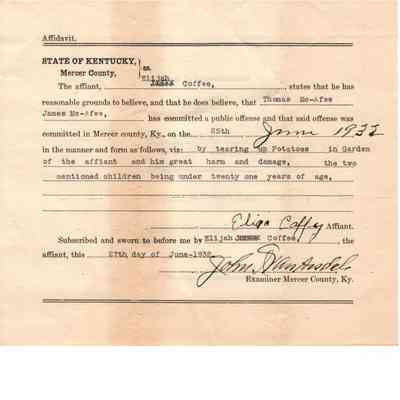 Affidavit.
STATE OF KENTUCKY,
Mercer County, ss.
Elijah
The affiant, James Coffee, states that he has
reasonable grounds to believe, and that he does believe, that Thomas Mc-Afee
James Mc-Afee, has committed a public offense and that said offense was
committed in Mercer county, Ky., on the 25th June 1932
in the manner and form as follows, viz: by tearing up Potatoes in Garden
of the affiant and his great harm and damage, the two
mentioned children being under twenty one years of age,
Elija Coffey Affiant.
Subscribed and sworn to before me by Elijah Coffee, the
affiant, this 27th day of June-1932
John VanArsdel
Examiner Mercer County, Ky.